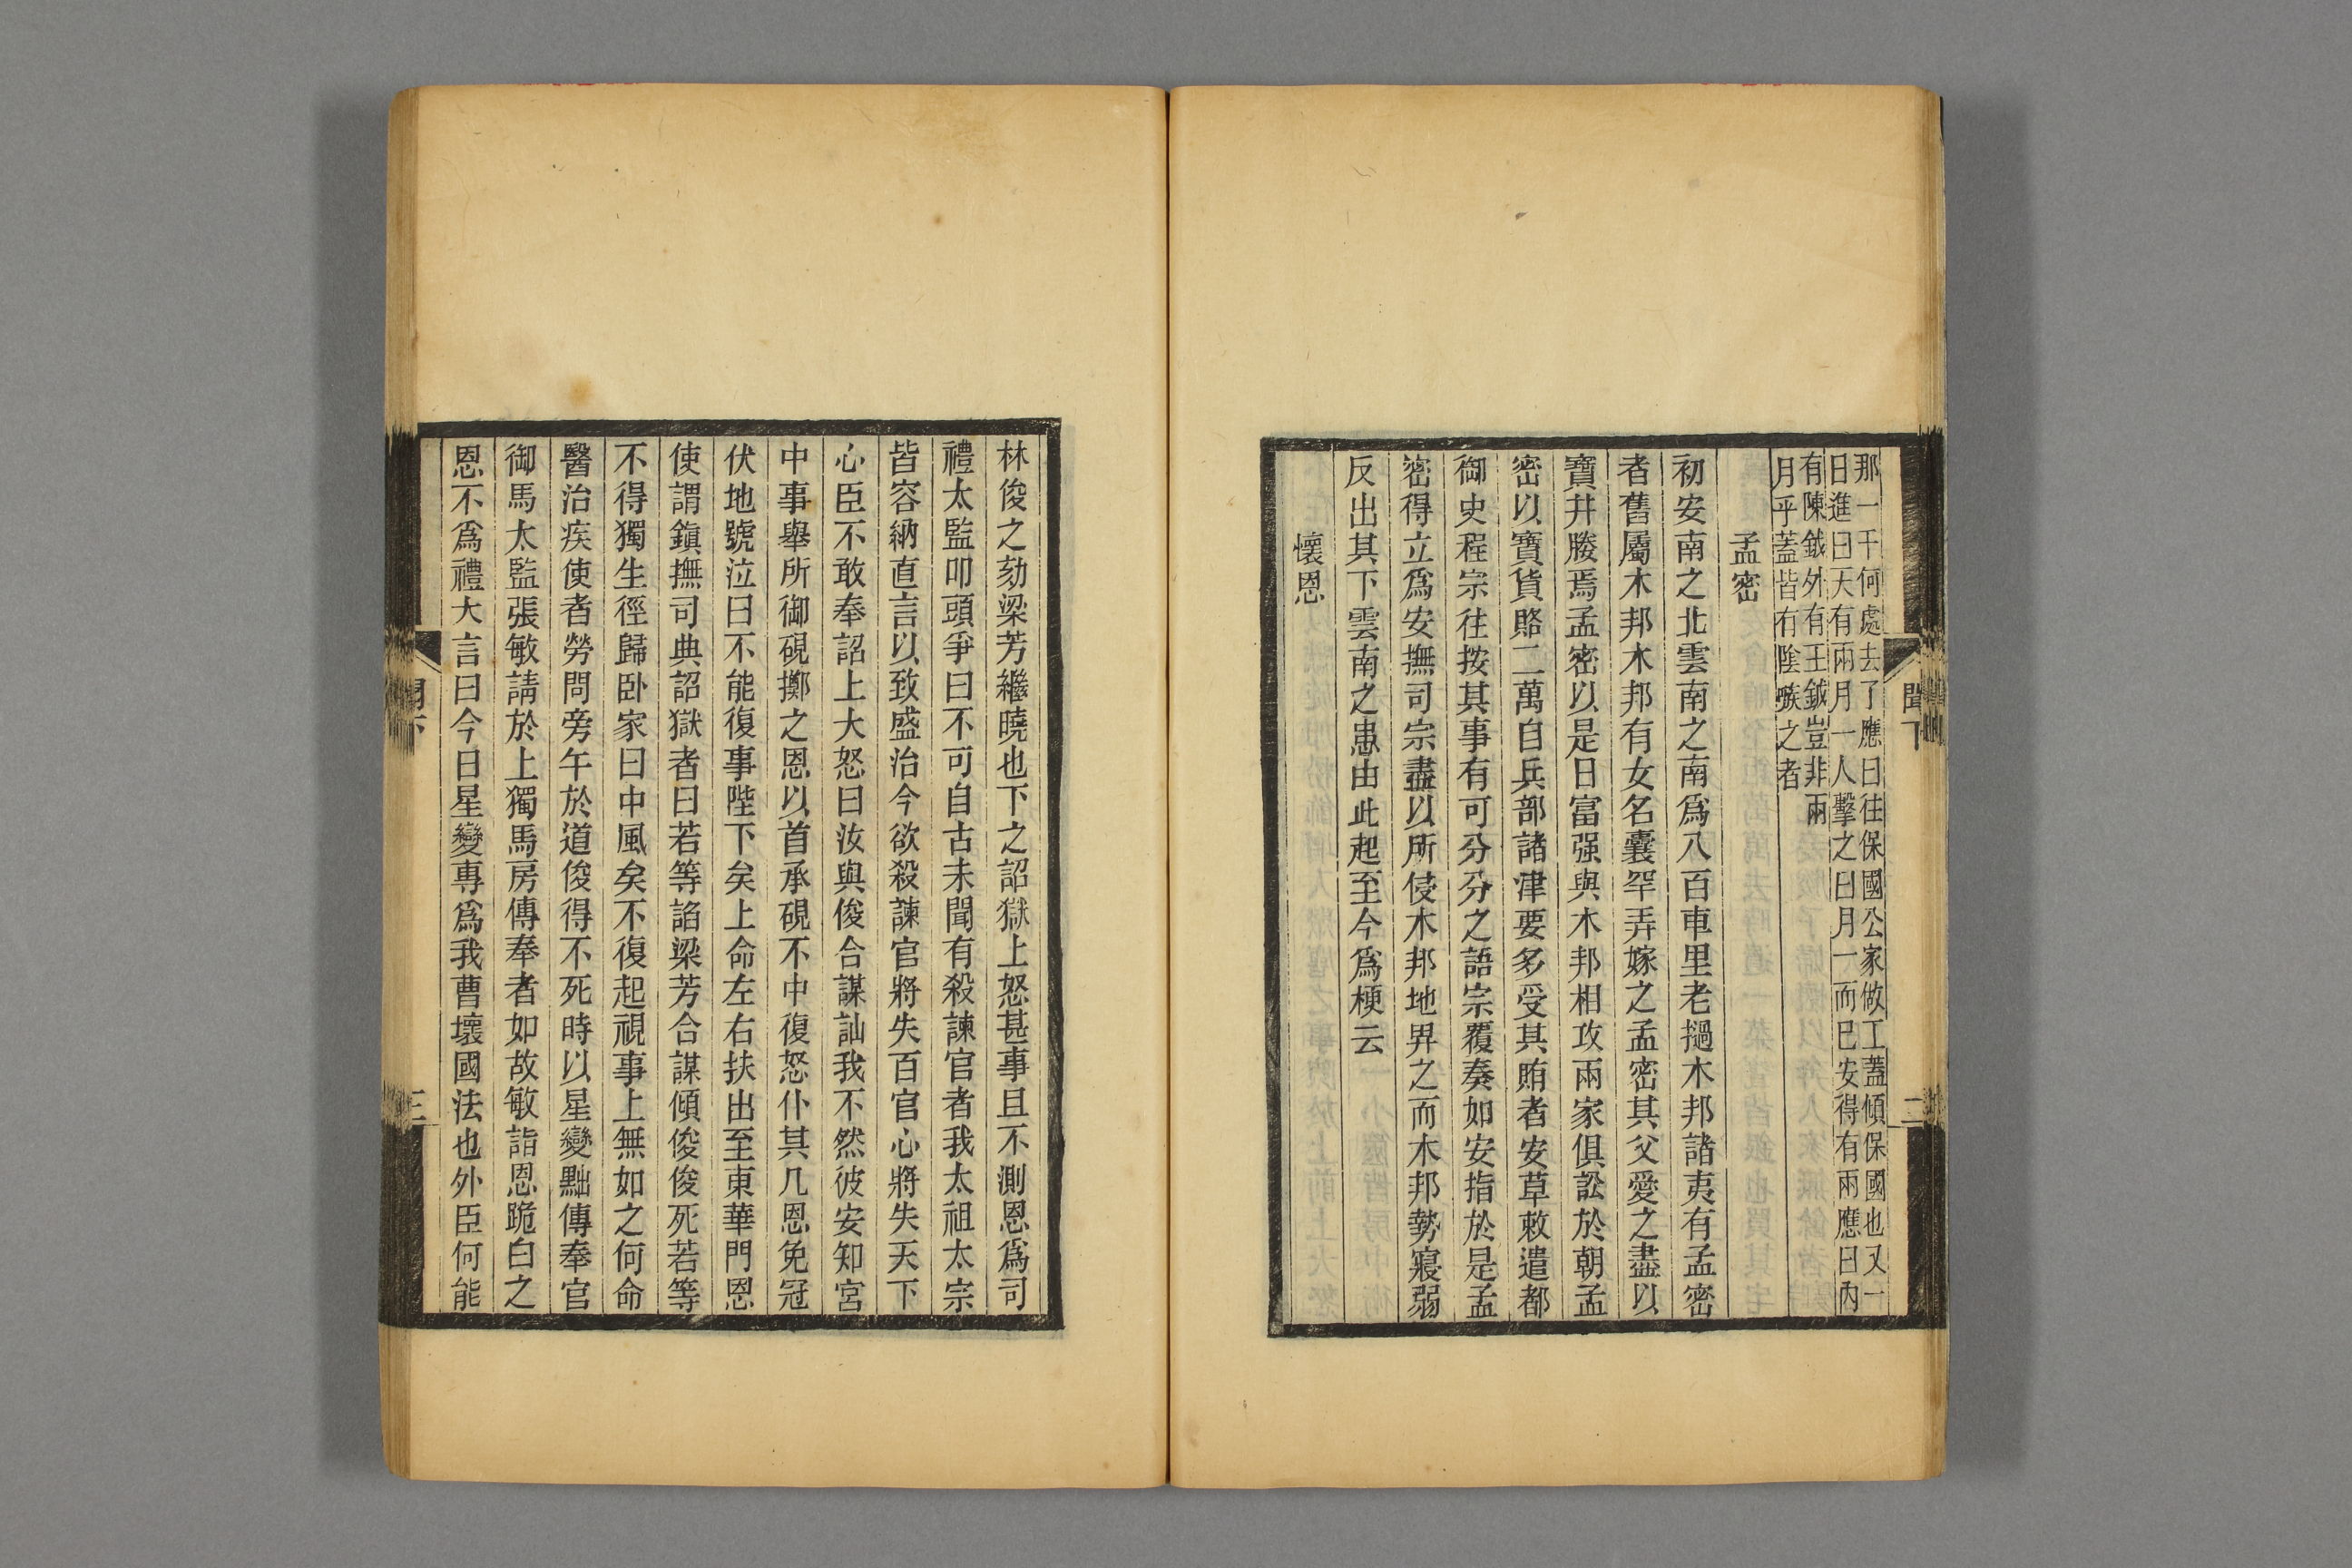 那一千何處去了應曰往保國公家做工蓋傾保國也又一
日進曰天有兩月一人擊之曰月一而已安得有兩應曰內
有陳鉞外有王鉞豈非兩
月乎蓋皆有陰嗾之者
孟密
初安南之北雲南之南爲八百車里老撾木邦諸夷有孟密
者舊屬木邦木邦有女名囊罕弄嫁之孟密其父愛之盡以
寶井媵焉孟密以是日富强與木邦相攻兩家俱訟於朝孟
密以寶貨賂二萬自兵部諸津要多受其賄者安草敕遣都
御史程宗往按其事有可分分之語宗覆奏如安指於是孟
密得立爲安撫司宗盡以所侵木邦地畀之而木邦勢寢弱
反出其下雲南之患由此起至今爲梗云
懷恩
聞下
二
林俊之劾梁芳繼曉也下之詔獄上怒甚事且不測恩爲司
禮太監叩頭爭曰不可自古未聞有殺諫官者我太祖太宗
皆容納直言以致盛治今欲殺諫官將失百官心將失天下
心臣不敢奉詔上大怒曰汝與俊合謀訕我不然彼安知宮
中事舉所御硯擲之恩以首承硯不中復怒仆其几恩免冠
伏地號泣曰不能復事陛下矣上命左右扶出至東華門恩
使謂鎭撫司典詔獄者曰若等諂梁芳合謀傾俊俊死若等
不得獨生徑歸臥家曰中風矣不復起視事上無如之何命
醫治疾使者勞問旁午於道俊得不死時以星變黜傳奉官
御馬太監張敏請於上獨馬房傳奉者如故敏詣恩跪白之
恩不爲禮大言曰今日星變專爲我曹壞國法也外臣何能
聞下
三